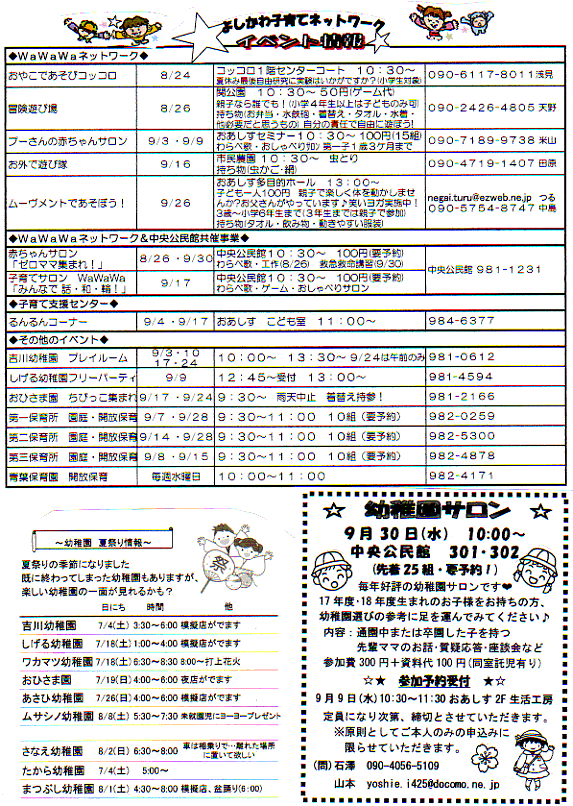 よしかわ子育てネットワーク
イベント情報
◆WaWaWaネットワーク◆
おやこであそびコッコロ 8/24 コッコロ1階センターコート 10:30～ 夏休み最後自由研究に実験はいかがですか?(小学生対象) 090-6117-8011浅見
冒険遊び場 8/26 関公園 10:30～ 50円(ゲーム代) 親子なら誰でも!(小学4年生以上は子どものみ可) 持ち物(お弁当・水鉄砲・着替え・タオル・水着・他必要だと思うもの) 自分の責任で自由に遊ぼう! 090-2426-4805 天野
プーさんの赤ちゃんサロン 9/3・9/9 おあしすセミナー10:30～ 100円(15組) わらべ歌・おしゃべりサロン 第一子1歳3ケ月まで 090-7189-9738 米山
お外で遊び隊 9/16 市民農園 10:30～ 虫とり 持ち物(虫かご・網) 090-4719-1407 田原
ムーヴメントであそぼう! 9/26 おあしす多目的ホール 13:00～ 子ども一人100円 親子で楽しく体を動かしませんか?お父さんがやっています♪笑いヨガ実施中! 3歳～小学6年生まで(3年生までは親子で参加) 持ち物(タオル・飲み物・動きやすい服装) negai.turu@ezweb.ne.jp つる 090-5754-8747 中島
◆WaWaWaネットワーク&中央公民館共催事業◆
赤ちゃんサロン 「ゼロママ集まれ!」 8/26・9/30 中央公民館10:30～ 100円(要予約) わらべ歌・工作(8/26) 救急救命講習(9/30) 中央公民館 981-1231
子育てサロン WaWaWa 「みんなで 話・和・輪!」 9/17 中央公民館10:30～ 100円(要予約) わらべ歌・ゲーム・おしゃべりサロン
◆子育て支援センター◆
るんるんコーナー 9/4・9/17 おあしす こども室 11:00～ 984-6377
◆その他のイベント◆
吉川幼稚園 プレイルーム 9/3・10 17・24 10:00～ 13:30～ 9/24は午前のみ 981-0612
しげる幼稚園フリーパーティ 9/9 12:45～受付 13:00～ 981-4594
おひさま園 ちびっこ集まれ 9/17・9/24 9:30～ 雨天中止 着替え持参! 981-2166
第一保育所 園庭・開放保育 9/7・9/28 9:30～11:00 10組(要予約) 982-0259
第二保育所 園庭・開放保育 9/14・9/28 9:30～11:00 10組(要予約) 982-5300
第三保育所 園庭・開放保育 9/8・9/15 9:30～11:00 10組(要予約) 982-4878
青葉保育園 開放保育 毎週水曜日 10:00～11:00 982-4171
～幼稚園 夏祭り情報～
夏祭りの季節になりました
既に終わってしまった幼稚園もありますが、
楽しい幼稚園の一面が見れるかも?
日にち 時間 他
吉川幼稚園 7/4(土) 3:30～6:00 模擬店がでます
しげる幼稚園 7/18(土) 1:00～4:00 模擬店がでます
ワカマツ幼稚園 7/18(土) 6:30～8:30 8:00～打上花火
おひさま園 7/19(日) 4:00～6:00 夜店がでます
あさひ幼稚園 7/26(日) 4:00～6:00 模擬店がでます
ムサシノ幼稚園 8/8(土) 5:30～7:30 未就園児にヨーヨープレゼント
さなえ幼稚園 8/2(日) 6:30～8:00 車は相乗りで…離れた場所に置いて欲しい
たから幼稚園 7/4(土) 5:00～
まつぶし幼稚園 8/1(土) 4:30～8:00 模擬店、盆踊り(6:00)
☆ 幼稚園サロン ☆
9月30日(水) 10:00～
中央公民館 301・302
(先着25組・要予約!)
毎年好評の幼稚園サロンです❤
17年度・18年度生まれのお子様をお持ちの方、
幼稚園選びの参考に足を運んでみてください♪
内容:通園中または卒園した子を持つ
先輩ママのお話・質疑応答・座談会など
参加費300円+資料代100円(同室託児有り)
☆★ 参加予約受付 ★☆
9月9日(水)10:30～11:30 おあしす2F生活工房
定員になり次第、締切とさせていただきます。
※原則としてご本人のみの申込みに
限らせていただきます。
(問)石澤 090-4056-5109
山本 yoshie.i425@docomo.ne.jp